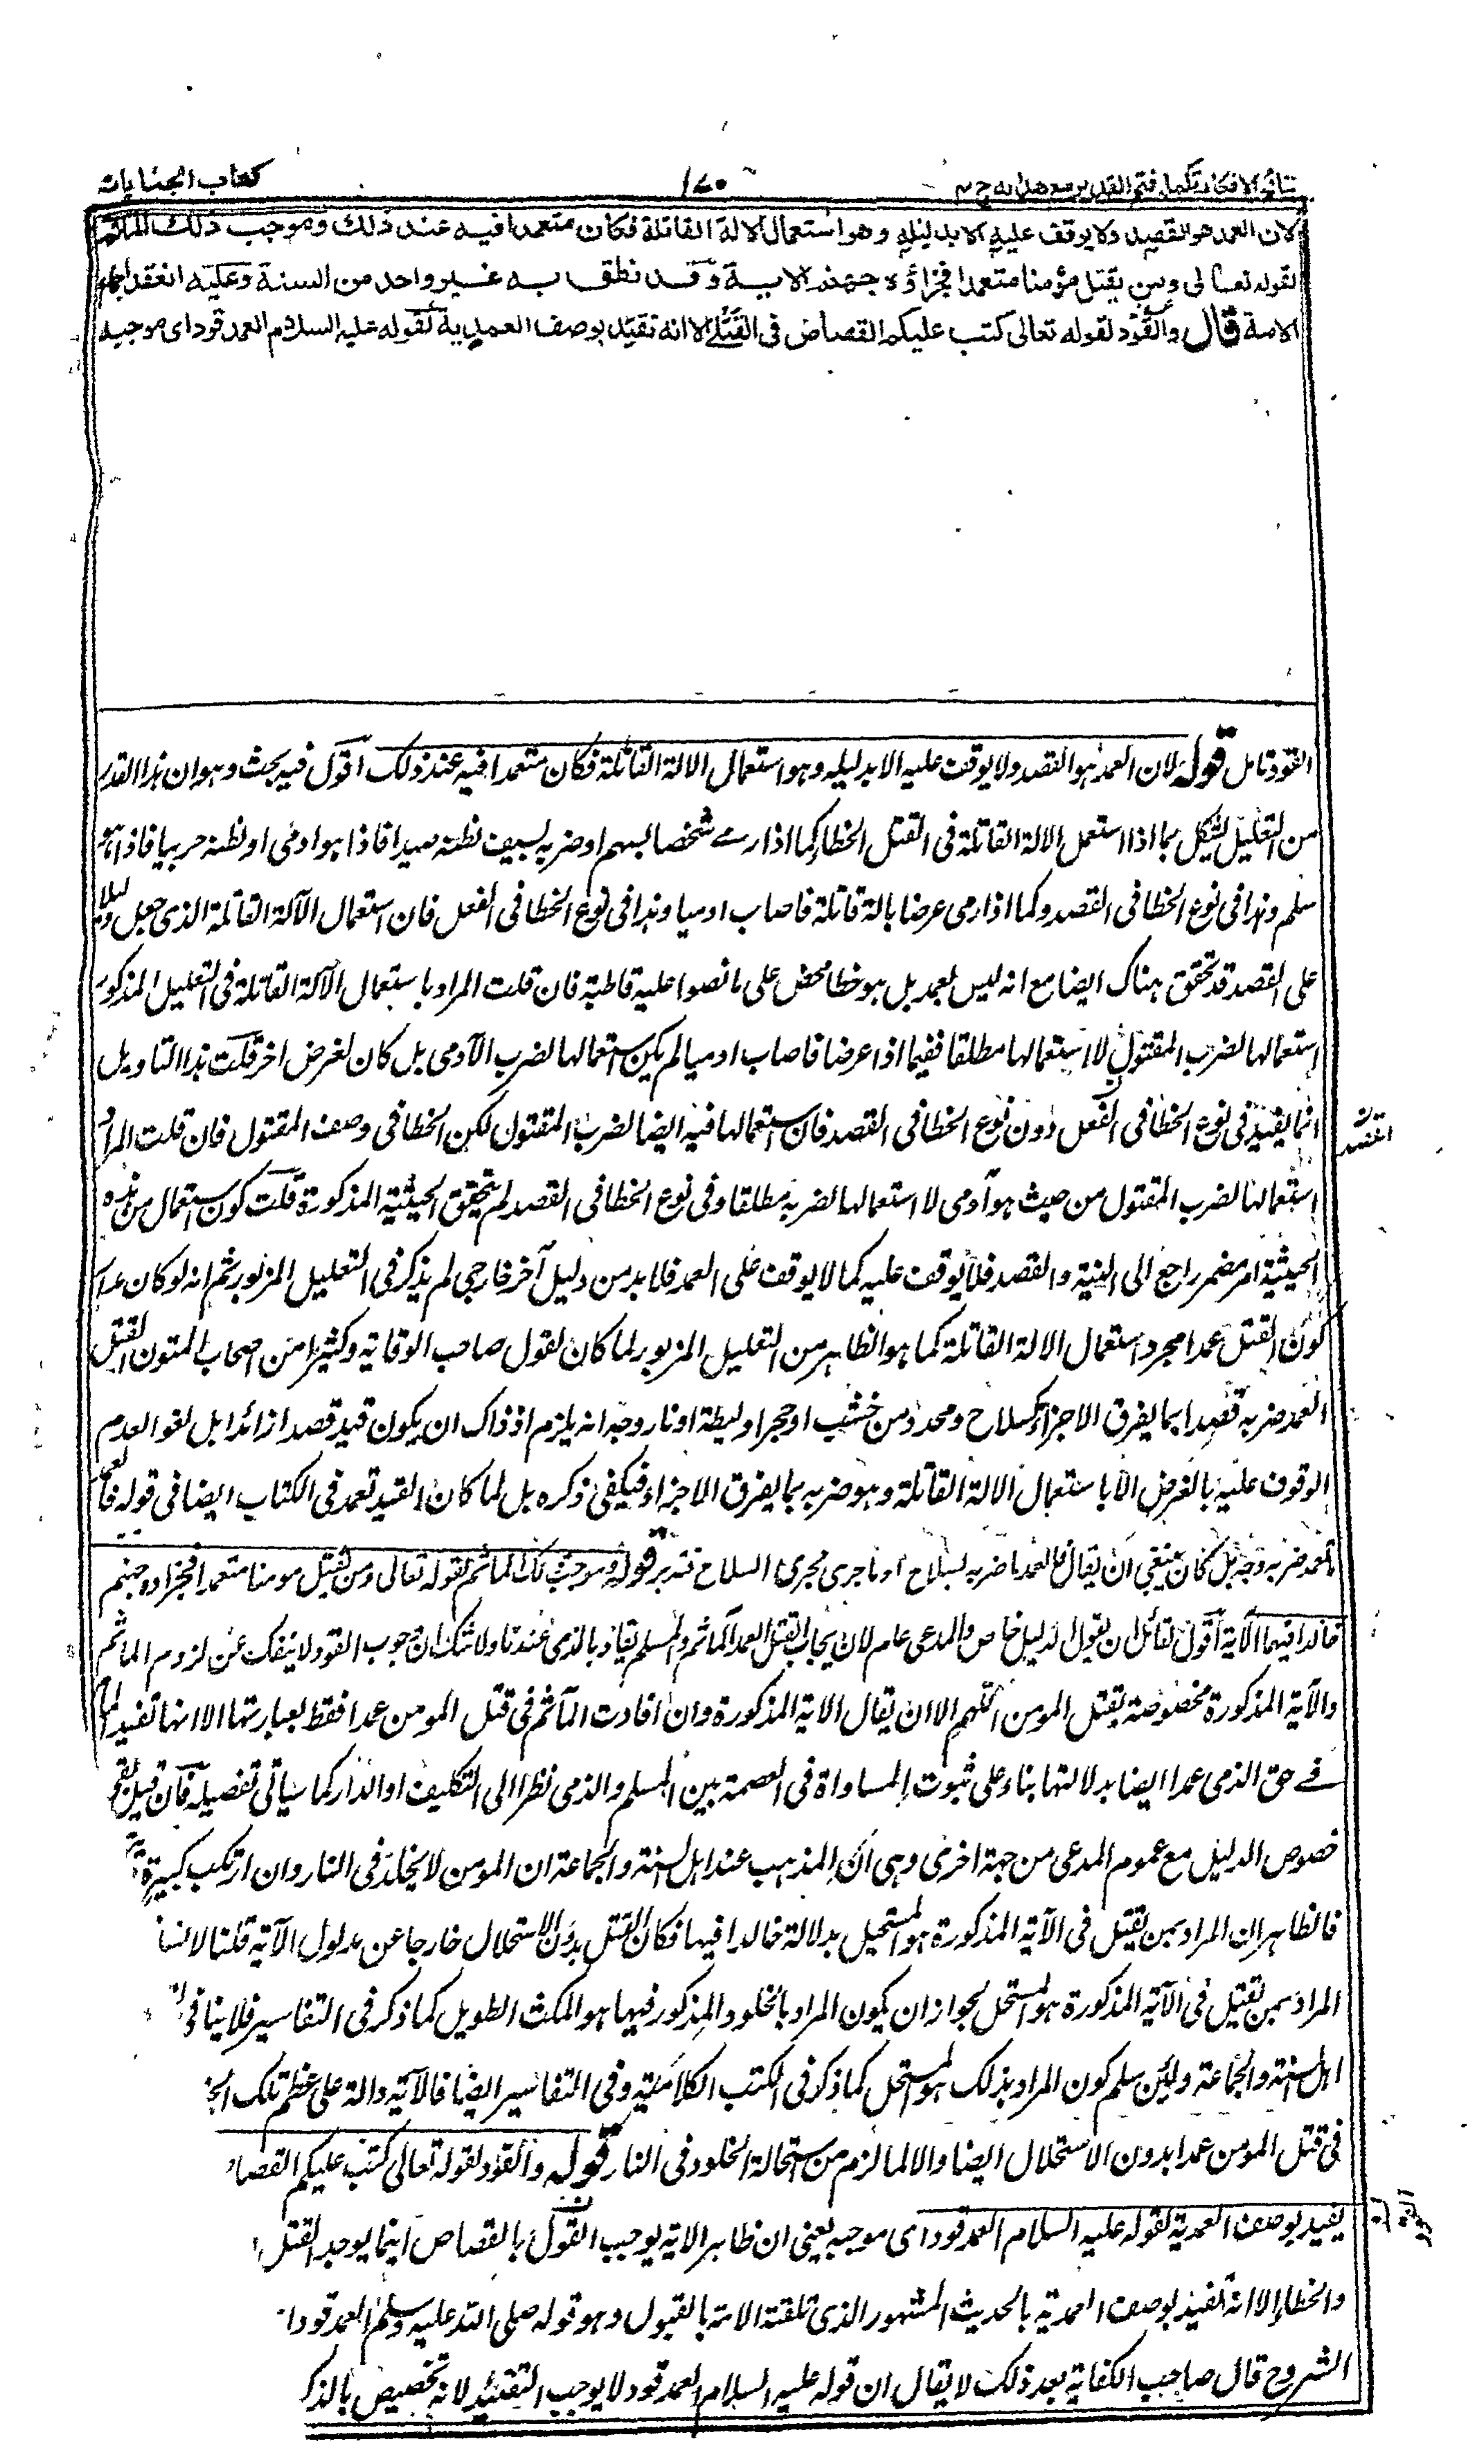 نتائج الافكار تكملة فتح القدير مع هدايه ج ٤
١٧٠
كتاب الجنايات
لان العمد هو القصد ولا يوقف عليه الا بدليله وهو استعمال الالة القاتلة فكان متعمدا فيه عند ذلك وموجب ذلك المأثم
لقوله تعالى ومن يقتل مؤمنا متعمدا فجزاؤه جهنم الاية وقد نطق به غير واحد من السنة وعليه انعقد اجماع
الامة قال والقود لقوله تعالى كتب عليكم القصاص فى القتلى الا انه تقيد بوصف العمدية لقوله عليه السلام العمد قود اى موجبه
القود تامل قوله لان العمد هو القصد ولا يوقف عليه الا بدليله وهو استعمال الالة القاتلة فكان متعمدا فيه عند ذلك اقول فيه بحث وهو ان هذا القدر
من التعليل يشكل بما اذا استعمل الالة القاتلة فى القتل الخطا كما اذا رمى شخصا بسهم او ضربه بسيف نظنه صيدا فاذا هو ادمى او نظنه حربيا فاذا هو
مسلم وهذا فى نوع الخطا فى القصد وكما اذا رمى عرضا بالة قاتلة فاصاب ادميا وهذا فى نوع الخطا فى الفعل فان استعمال الآلة القاتلة الذى جعل دليلا
على القصد قد تحقق هناك ايضا مع انه ليس بعمد بل هو خطا محض على ما نصوا عليه قاطبة فان قلت المراد باستعمال الآلة القاتلة فى التعليل المذكور
استعمالها لضرب المقتول لا استعمالها مطلقا ففيما اذا عرضا فاصاب ادميا لم يكن استعمالها لضرب الآدمى بل كان لغرض اخر قلت هذا التاويل
انما يفيد فى نوع الخطا فى الفعل دون نوع الخطا فى القصد فان استعمالها فيه ايضا لضرب المقتول لكن الخطا فى وصف المقتول فان قلت المراد
استعمالها لضرب المقتول من حيث هو آدمى لا استعمالها لضربه مطلقا وفى نوع الخطا فى القصد لم يتحقق الحيثية المذكورة قلت كون استعمال من هذه
الحيثية امر مضمر راجع الى النية والقصد فلا يوقف عليه كما لا يوقف على العمد فلا بد من دليل آخر خارجى لم يذكر فى التعليل المزبور ثم انه لو كان مدار
كون القتل عمدا مجرد استعمال الالة القاتلة كما هو الظاهر من التعليل المزبور لما كان لقول صاحب الوقاية وكثير من اصحاب المتون القتل
العمد ضربه قصدا بما يفرق الاجزاء كسلاح ومحدد من خشب او حجر او ليطة او نار وجه اذ يلزم اذ ذاك ان يكون قيد قصدا زائدا بل لغوا لعدم
الوقوف عليه بالفرض الا باستعمال الالة القاتلة وهو ضربه بما يفرق الاجزاء فيكفى ذكره بل لما كان القيد تعمد فى الكتاب ايضا فى قوله فالعمد
ما تعمد ضربه وجه بل كان ينبغى ان يقال فالعمد ما ضربه بسلاح او ما جرى مجرى السلاح تدبر قوله وموجب ذلك المأثم لقوله تعالى ومن يقتل مومنا متعمدا فجزاؤه جهنم
خالدا فيها الآية اقول لقائل ان يقول الدليل خاص والمدعى عام لان ايجاب القتل العمد المأثم والمسلم يقاد بالذمى عندنا ولا شك ان وجوب القود لا ينفك عن لزوم المأثم
والآية المذكورة مخصوصة بقتل المومن اللهم الا ان يقال الاية المذكورة وان افادت المآثم فى قتل المومن عمدا فقط بعبارتها الا انها تفيد المأثم
فى حق الذمى عمدا ايضا بدلالتها بناء على ثبوت المساواة فى العصمة بين المسلم والذمى نظرا الى التكليف او الدار كما سياتى تفصيله فان قيل بقى
خصوص الدليل مع عموم المدعى من جهة اخرى وهى ان المذهب عند اهل السنة والجماعة ان المومن لا يخلد فى النار وان ارتكب كبيرة
فالظاهر ان المراد بمن يقتل فى الآية المذكورة هو المستحل بدلالة خالدا فيها فكان القتل بدون الاستحلال خارجا عن مدلول الآية قلنا لا نسلم
المراد بمن يقتل فى الآية المذكورة هو المستحل لجواز ان يكون المراد بالخلود المذكور فيها هو المكث الطويل كما ذكر فى التفاسير فلا ينافى
اهل السنة والجماعة ولئن سلم كون المراد بذلك هو المستحل كما ذكر فى الكتب الكلامية وفى التفاسير ايضا فالآية دالة على عظم تلك
فى قتل المومن عمدا بدون الاستحلال ايضا والا لما لزم من استحالة الخلود فى النار قوله والقود لقوله تعالى كتب عليكم القصاص
يفيد بوصف العمدية لقوله عليه السلام العمد قود اى موجبه يعنى ان ظاهر الاية يوجب القول بالقصاص اينما يوجد القتل
والخطا الا انه تقيد بوصف العمدية بالحديث المشهور الذى تلقته الامة بالقبول وهو قوله صلى الله عليه وسلم العمد قود
الشروح قال صاحب الكفاية بعد ذلك لا يقال ان قوله عليه السلام العمد قود لا يوجب التقييد لانه تخصيص بالذكر